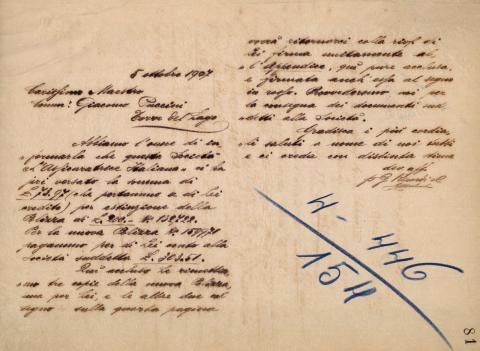 5 ottobre 1907
Carissimo Maestro
Comm: Giacomo Puccini
Torre del Lago
Abbiamo l'onore di in,
formarLa che questa Società
"L'Assicuratrice Italiana" ci ha
poi versato la somma di
(che portammo a di Lei
credito) per estinzione della
Polizza di L. 200.-
Per la nuova Polizza
pagammo per di Lei conto alla
Società suddetta
Qui accluso Le rimettia,
mo tre copie della nuova Polizza,
una per Lei, e le altre due col
segno sulla quarta pagina
vorrà ritornarci colla di
Lei firma unitamente al,
l'Appendice, qui pure acclusa,
e firmata anch'essa al segno
in rosso. Provvederemo noi per
la consegna dei documenti sud,
detti alla Società.
Gradisca i più cordia,
li saluti a nome di noi tutti
e ci creda con distinta stima
4. 446
154
81